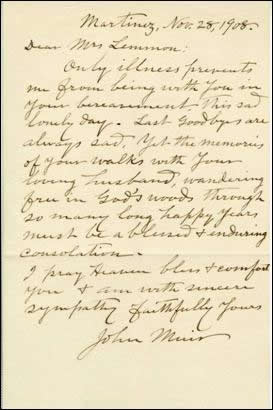 Martinez, Nov. 28, 1908.
Dear Mrs Lemmon:
Only illness prevents
me from being with you in
your bereavement this sad
lonely day. Last Goodbys are
always sad, Yet the memories
of your walks with your
loving husband, wandering
free in God's woods through
so many long happy years
must be a blessed & enduring
consolation.
I pray Heaven bless & comfort
you & am with sincere
sympathy faithfully yours
John Muir